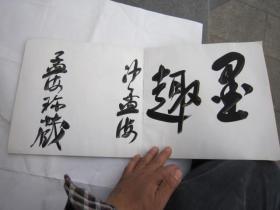 墨趣
沙孟海
孟海珍藏